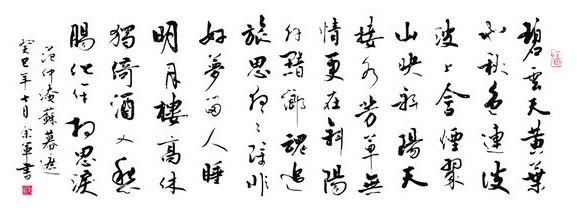 碧雲天黃葉
地秋色連波
波上含煙翠
山映斜陽天
接水芳草無
情更在斜陽
外黯鄉魂追
旅思夜夜除非
好夢留人睡
明月樓高休
獨倚酒入愁
腸化作相思淚
范仲淹蘇幕遮
癸巳年十月余軍書